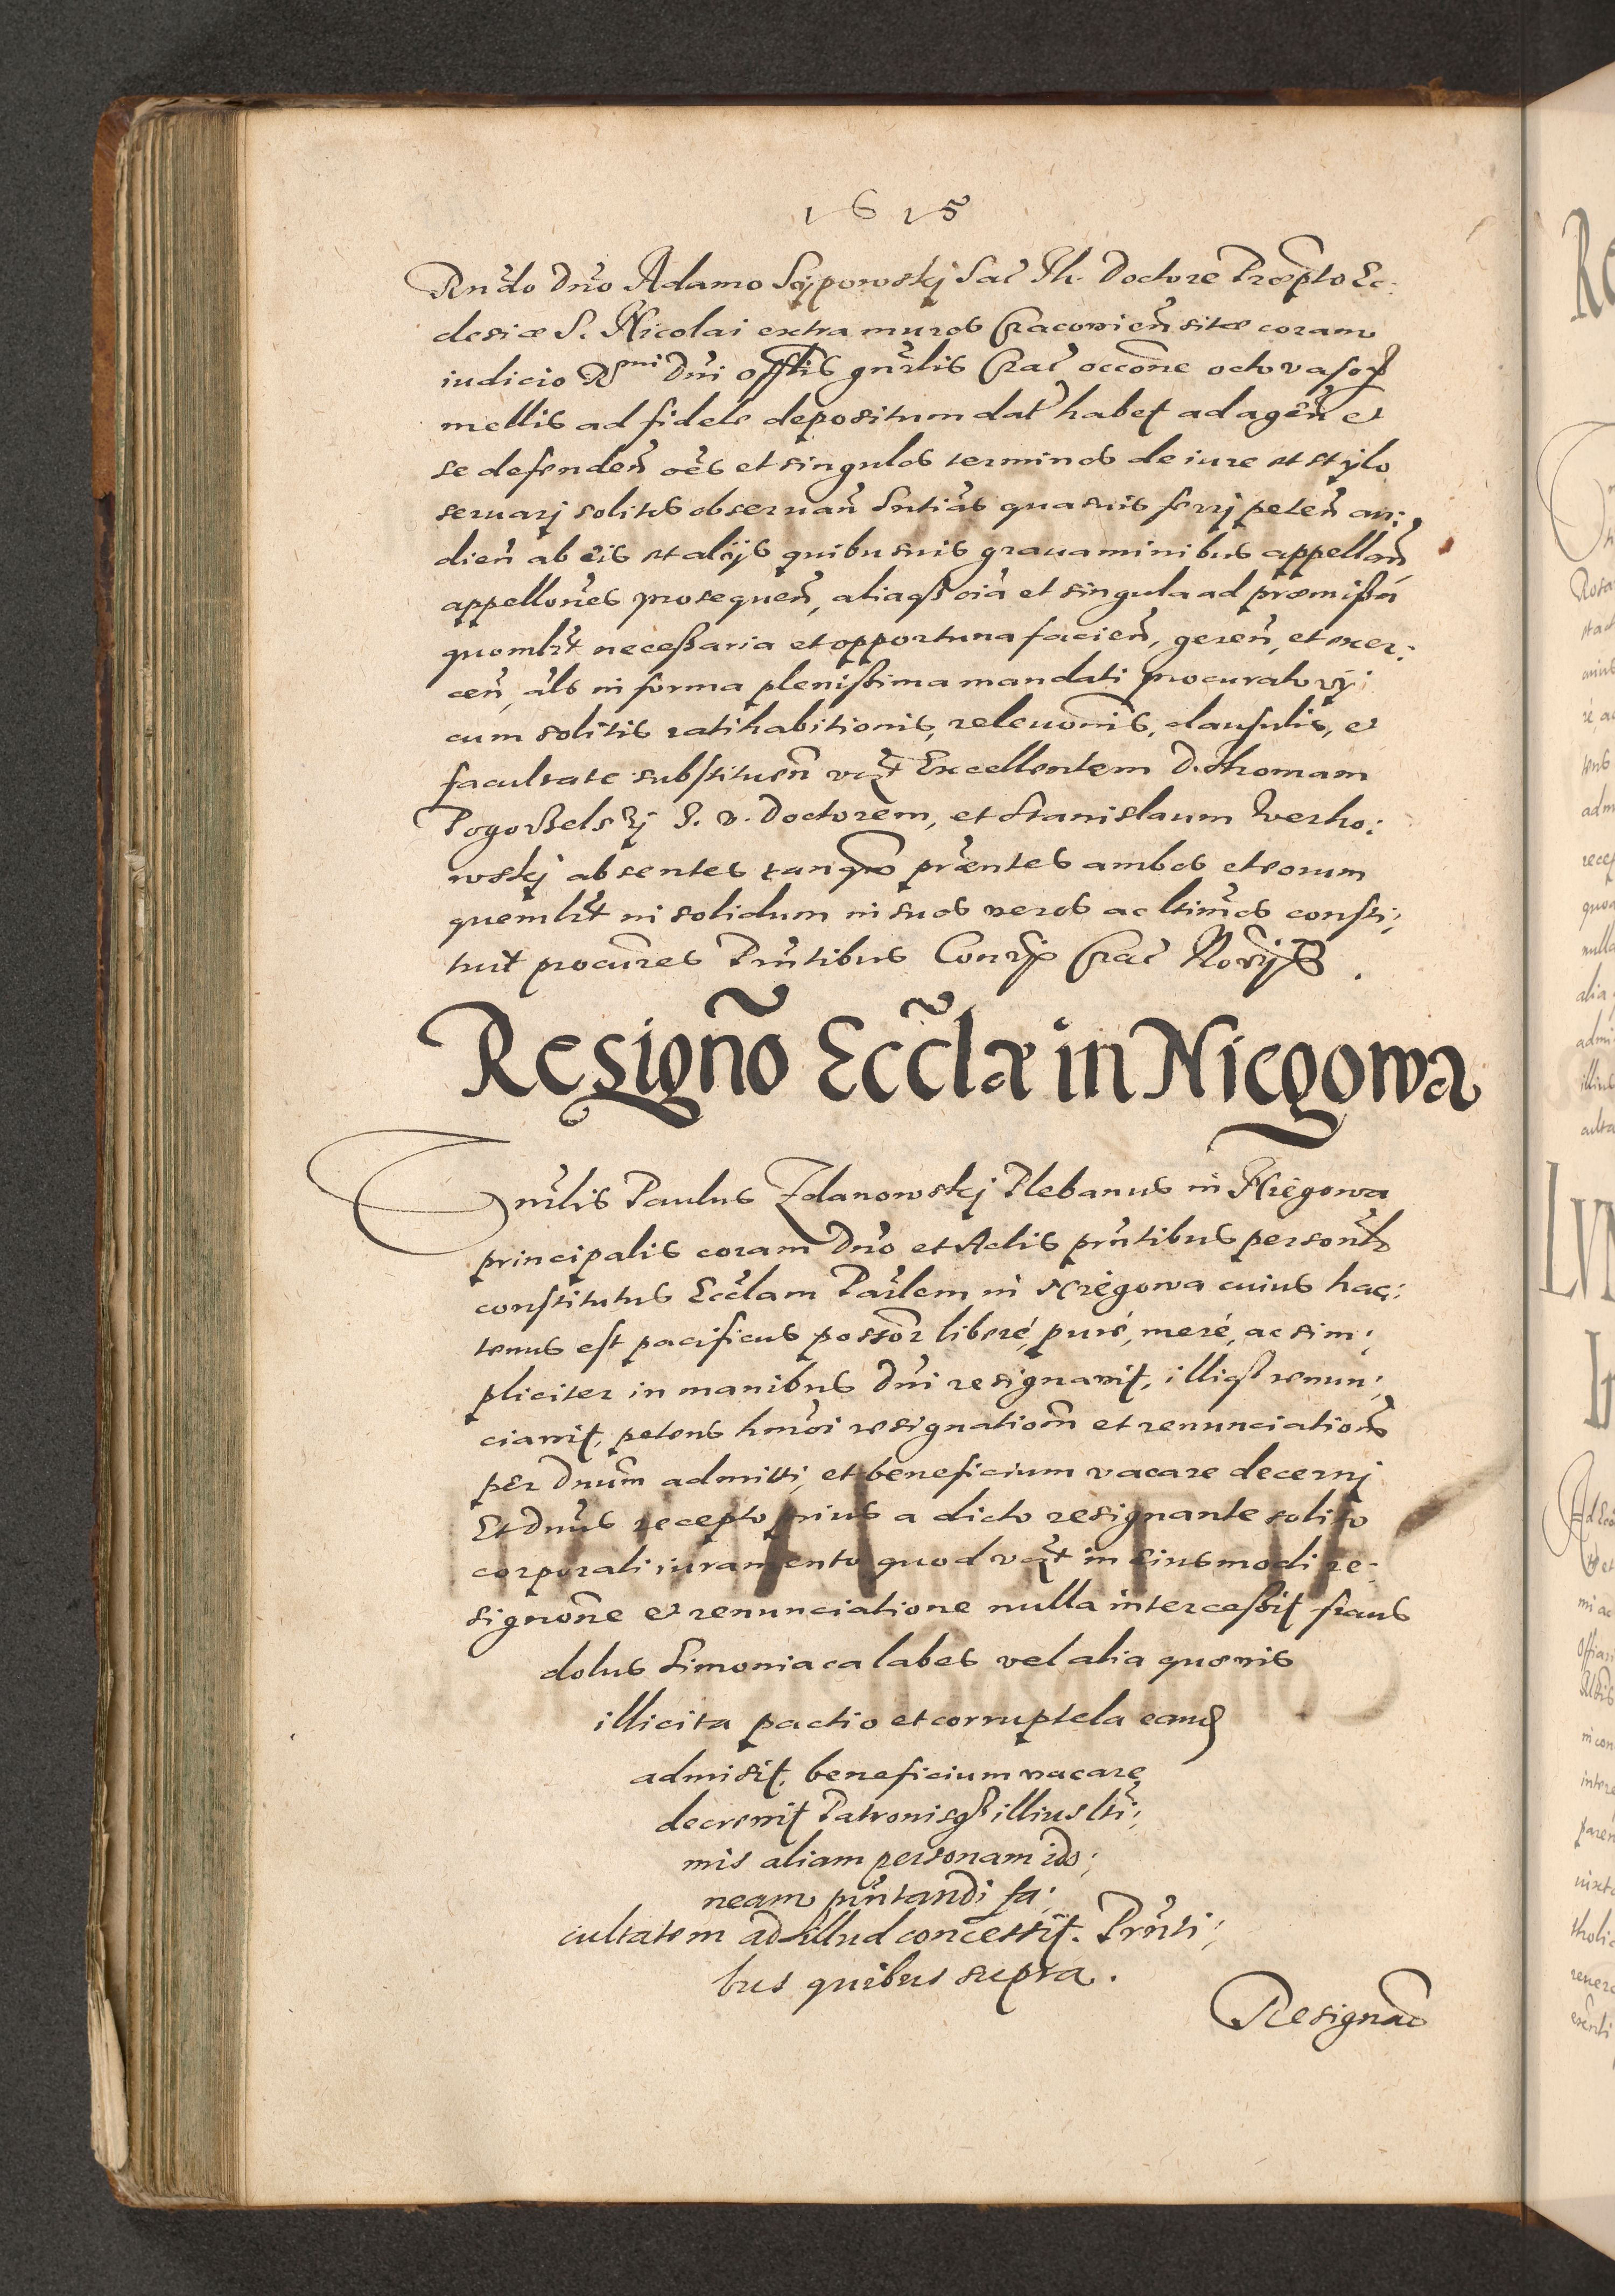 1615
Rndo Dno Adamo Sypowskj Sac Th. Doctore Præpto Ec:
clesiæ S. Nicolai extra muros Cracovien sitæ coram
iudicio Rmi Dni offlis gnrlis Crac occone octo vasorum
mellis ad fidele depositum dat habet ad agen et
se defenden oes et singulos terminos de iure et stylo
seruarj solitos obseruan Sntias quasuis ferrj peten au:
dien ab eis et alijs quibusuis grauaminibus appellan
appellones prosequen, aliaq oia et singula ad præmissa
quomlt necessaria et opportuna facien, geren, et exer:
cen, als in forma plenissima mandati procuratorij
cum solitis ratihabitionis, releuonis, clausulis, et
facultate substituen vqt Excellentem D. Thomam
Pogorselskj J. V. Doctorem, et Stanislaum Werho:
wskj absentes tanqm præntes ambos et eorum
quemlt in solidum in suos veros ac ltimos consti:
tuit procures Prntibus Consrijs Crac Norijs.
Resigno Eccla in Niegowa
Gnrlis Paulus Zdanowskj Plebanus in Niegowa
principalis coram Dno et Actis prntibus personlr
constitutus Ecclam Parlem in Niegowa cuius hac:
tenus est pacificus possor liberé, puré, meré, ac sim:
pliciter in manibus Dni resignauit, illiq renun:
ciauit, petens hmoi resignationem et renunciationem
per Dnum admitti, et beneficium vacare decernj
Et Dnus recepto prius a dicto resignante solito
corporali iuramento quod vqt in eiusmodi re-
signone et renunciatione nulla intercessit fraus
dolus Simoniaca labes vel alia quæuis
illicita pactio et corruptela eand
admisit, beneficium vacare
decreuit Patronisq illius lti:
mis aliam personam ido:
neam pntandi fa:
cultatem ad illud concessit. Prnti:
bus quibus supra.
Resignao